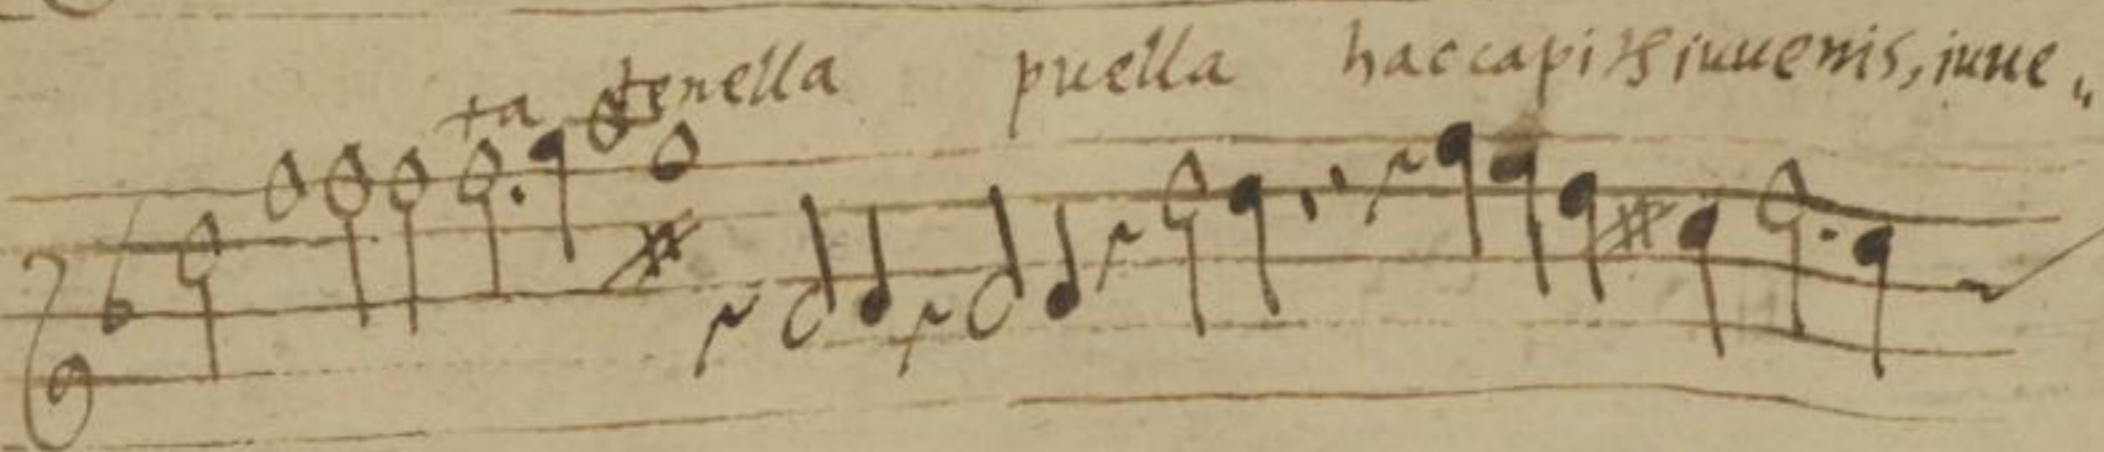 ta tenella puella hac capi iuuenis, iuue„